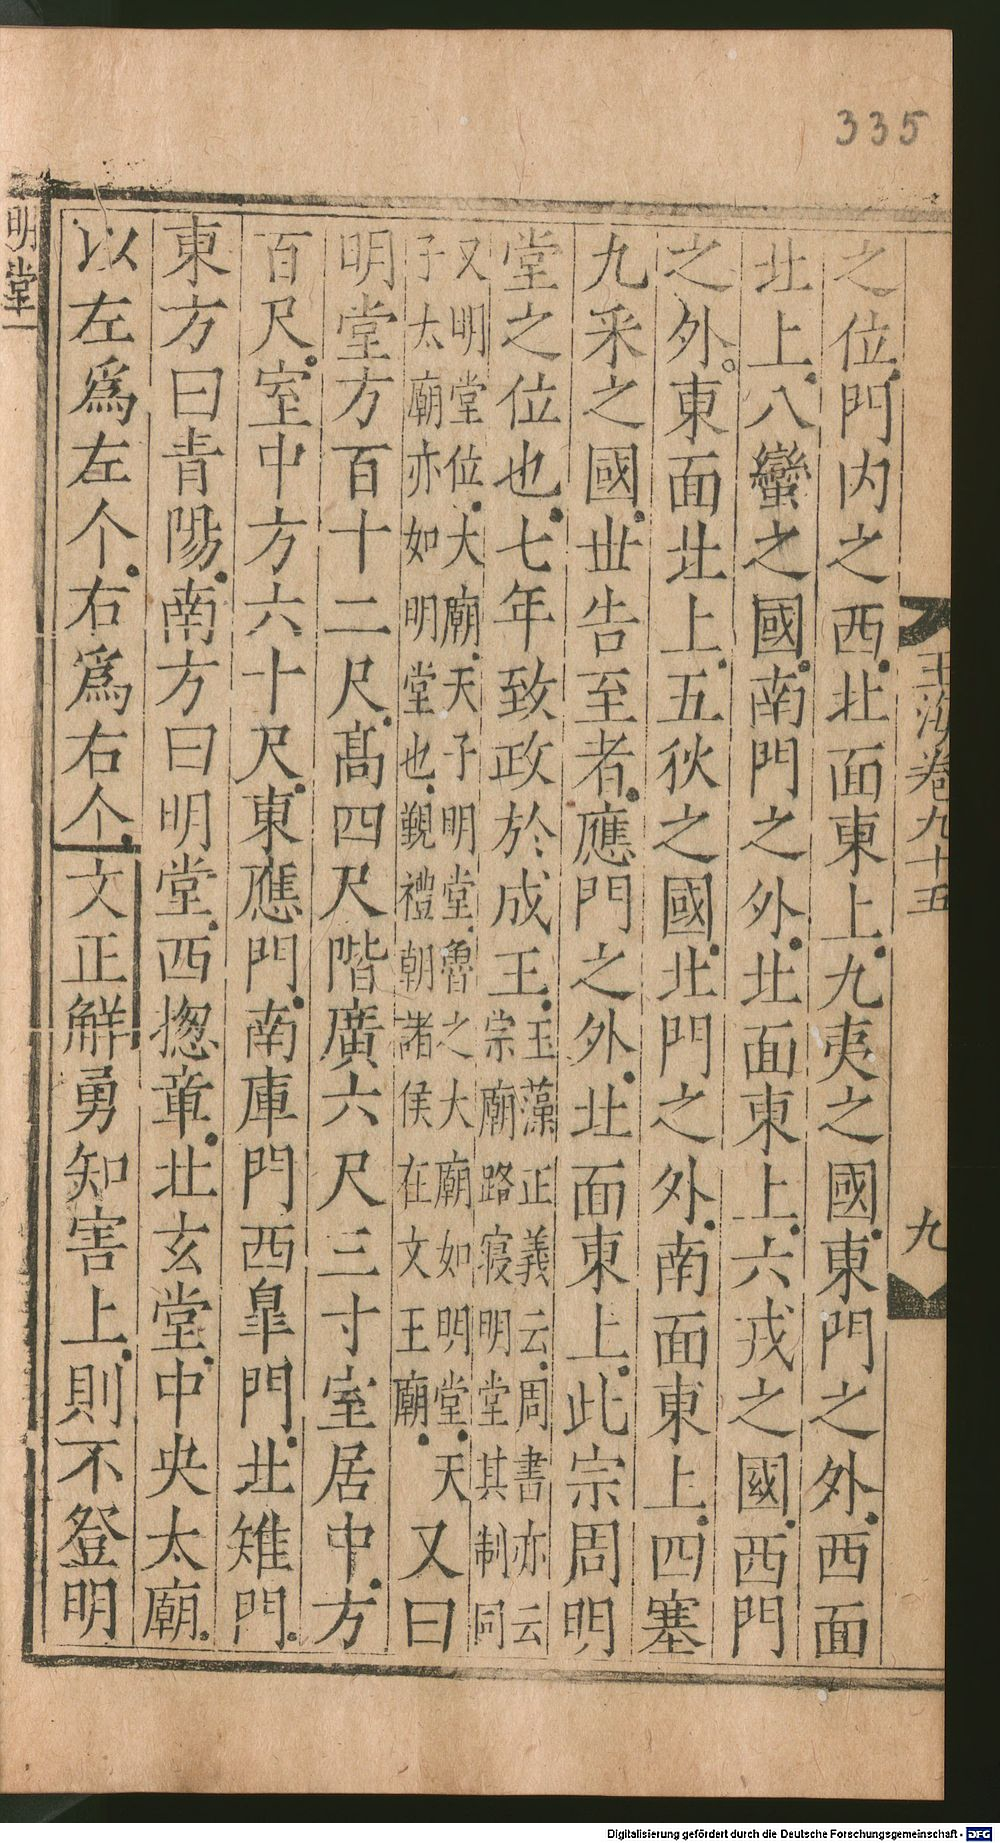 335
玉海卷九十五
九
之位門内之西北面東上九夷之國東門之外西面
北上八蠻之國南門之外北面東上六戎之國西門
之外東面北上五狄之國北門之外南面東上四塞
九釆之國丗告至者應門之外北面東上此宗周明
堂之位也七年致政於成王玉藻正義云周書亦云
宗廟路寢明堂其制同
又明堂位大廟天子明堂魯之大廟如明堂天
子太廟亦如明堂也觀禮朝諸侯在文王廟又曰
明堂方百十二尺髙四尺階廣六尺三寸室居中方
百尺室中方六十尺東應門南庫門西臯門北雉門
東方曰青陽南方曰明堂西揔章北玄堂中央太廟
以左爲左个右爲右个文正解勇知害上則不登明
明堂一
Digitalisierung gefördert durch die Deutsche Forschungsgemeinschaft - DFG